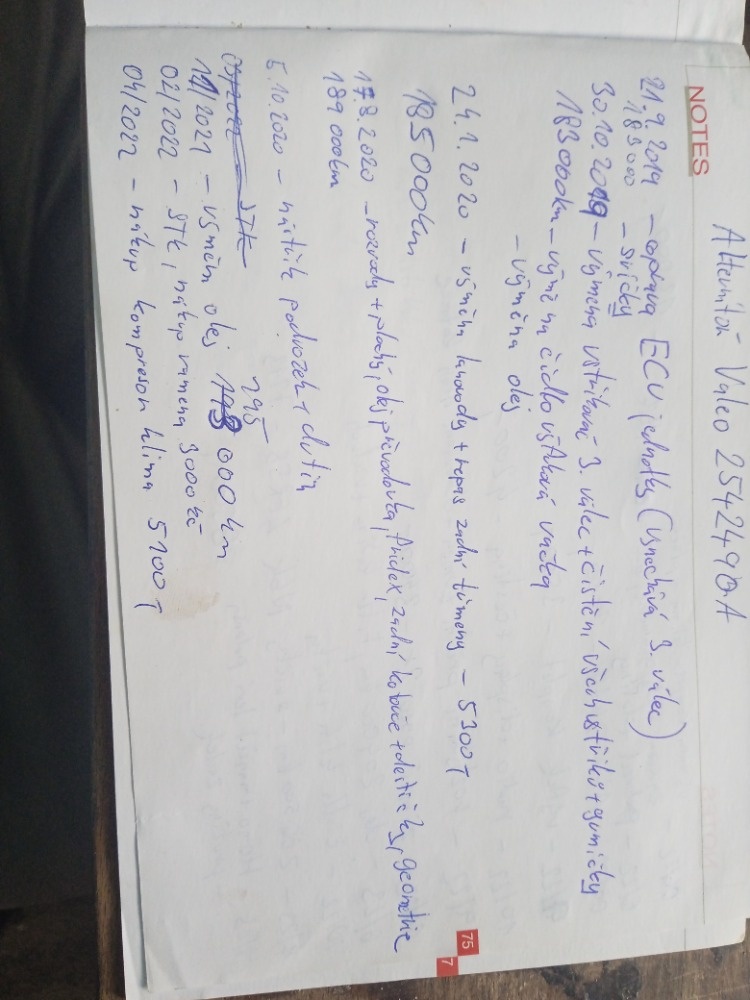 NOTES
Alternátor Valeo 2542490A
21.9.2019 - oprava ECU jednotky (vynechává 3. válec)
183000 - svíčky
30.10.2019 - výměna vstřikovač 3. válec + čistění všech vstřiků + gumičky
183000km - výměna čidlo vstřiková vačka
- výměna olej
24.1.2020 - výměna hrvody + repas zadní třmeny - 5300
185000km
17.8.2020 - rozvody + plochý, olej převodovka, Fridex, zadní kotouče + destičky, geometrie
189000km
5.10.2020 - nástřik podvozek + dutin
STK
195
11/2021 - výměn olej 000km
02/2022 - STK, nákup ramena 3000kč
04/2022 - nákup kompresor klima 5100
75
7